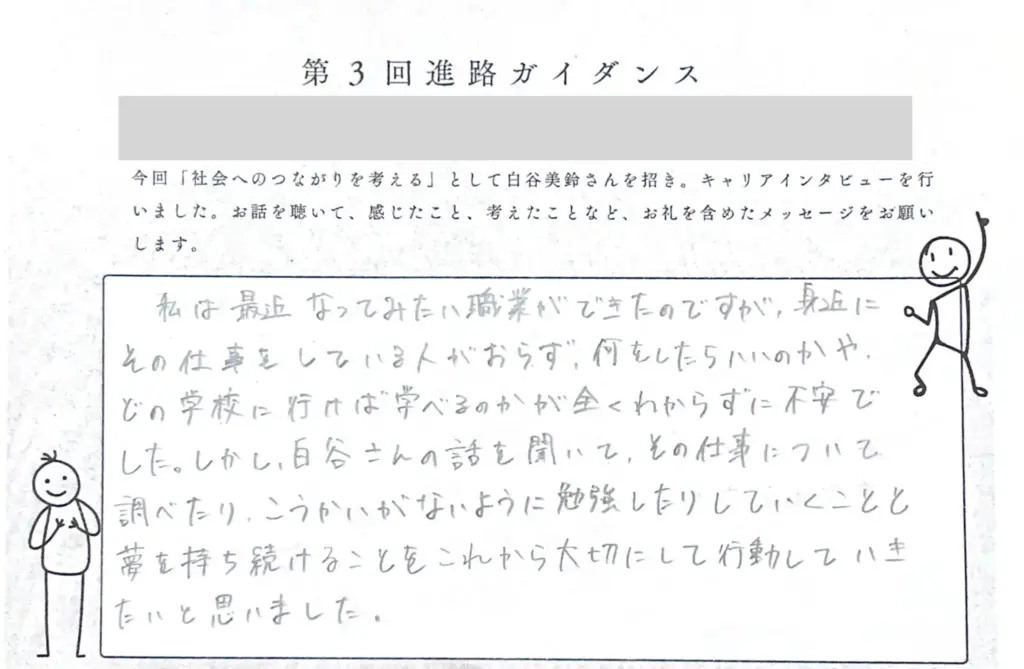 第3回進路ガイダンス
今回「社会へのつながりを考える」として白谷美鈴さんを招き。キャリアインタビューを行
いました。お話を聴いて、感じたこと、考えたことなど、お礼を含めたメッセージをお願い
します。
私は最近なってみたい職業ができたのですが、身近に
その仕事をしている人がおらず、何をしたらいいのかや、
どの学校に行けば学べるのかが全くわからずに不安で
した。しかし、白谷さんの話を聞いて、その仕事について
調べたり、こうかいがないように勉強したりしていくことと
夢を持ち続けることをこれから大切にして行動していき
たいと思いました。